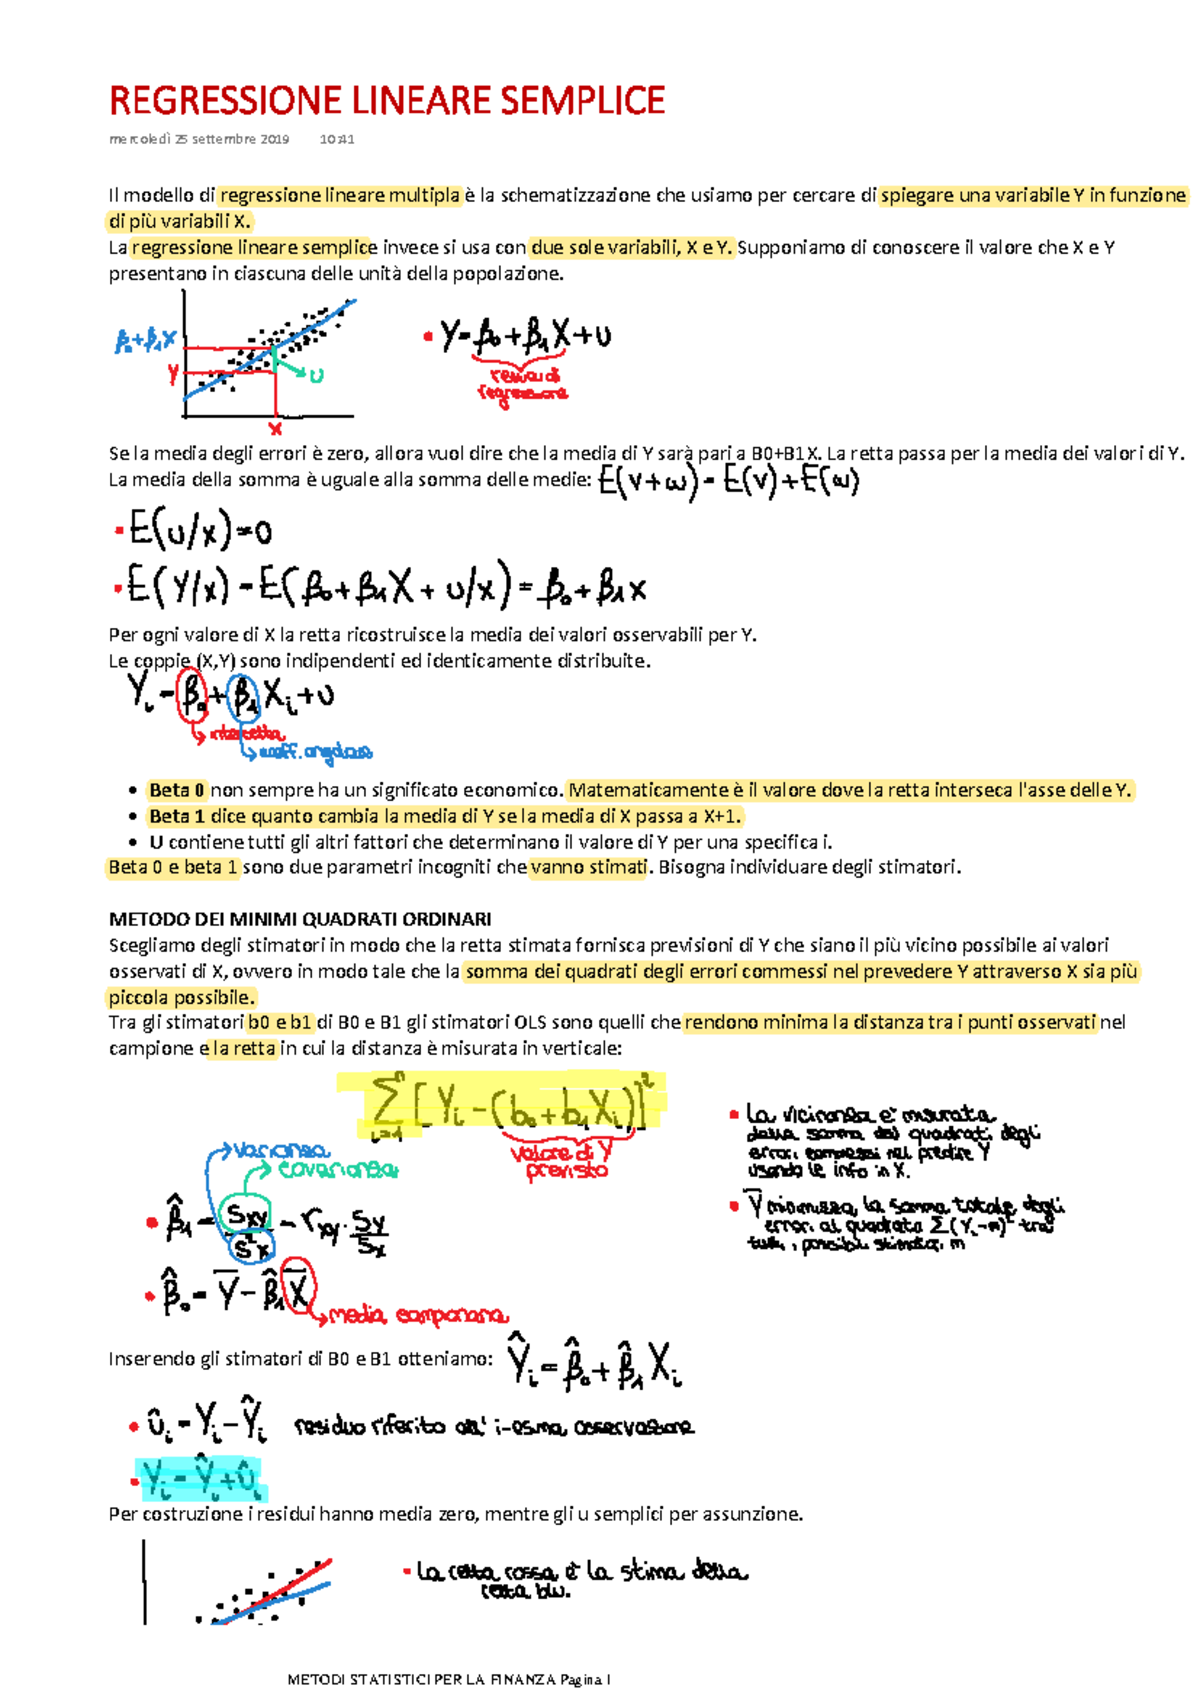 REGRESSIONE LINEARE SEMPLICE
mercoledì 25 settembre 2019 10:41
Il modello di regressione lineare multipla è la schematizzazione che usiamo per cercare di spiegare una variabile Y in funzione
di più variabili X.
La regressione lineare semplice invece si usa con due sole variabili, X e Y. Supponiamo di conoscere il valore che X e Y
presentano in ciascuna delle unità della popolazione.
β₀+β₁X
Y
U
X
• Y=β₀+β₁X+U
retta di
regressione
Se la media degli errori è zero, allora vuol dire che la media di Y sarà pari a B0+B1X. La retta passa per la media dei valori di Y.
La media della somma è uguale alla somma delle medie: E(v+w) = E(v)+E(w)
• E(u/x)=0
• E(Y/x) = E(β₀+β₁X + u/x) = β₀+β₁x
Per ogni valore di X la retta ricostruisce la media dei valori osservabili per Y.
Le coppie (X,Y) sono indipendenti ed identicamente distribuite.
Yᵢ = β₀+β₁Xᵢ+U
intercetta
coeff. angolare
• Beta 0 non sempre ha un significato economico. Matematicamente è il valore dove la retta interseca l'asse delle Y.
• Beta 1 dice quanto cambia la media di Y se la media di X passa a X+1.
• U contiene tutti gli altri fattori che determinano il valore di Y per una specifica i.
Beta 0 e beta 1 sono due parametri incogniti che vanno stimati. Bisogna individuare degli stimatori.
METODO DEI MINIMI QUADRATI ORDINARI
Scegliamo degli stimatori in modo che la retta stimata fornisca previsioni di Y che siano il più vicino possibile ai valori
osservati di X, ovvero in modo tale che la somma dei quadrati degli errori commessi nel prevedere Y attraverso X sia più
piccola possibile.
Tra gli stimatori b0 e b1 di B0 e B1 gli stimatori OLS sono quelli che rendono minima la distanza tra i punti osservati nel
campione e la retta in cui la distanza è misurata in verticale:
Σⁿᵢ₌₁ [Yᵢ - (b₀+b₁Xᵢ)]²
valore di Y
previsto
• La vicinanza e' misurata
dalla somma dei quadrati degli
errori commessi nel predire Y
usando le info in X.
• Y̅ minimizza la somma totale degli
errori al quadrato Σ(Yᵢ-m)² tra
tutti i possibili stimatori m
varianza
covarianza
• β̂₁ = Sxy/S²x = rxy · Sy/Sx
• β̂₀ = Y̅ - β̂₁X̅
media campionaria
Inserendo gli stimatori di B0 e B1 otteniamo: Ŷᵢ = β̂₀+β̂₁Xᵢ
• ûᵢ = Yᵢ - Ŷᵢ residuo riferito all' i-esima osservazione
• Yᵢ = Ŷᵢ + ûᵢ
Per costruzione i residui hanno media zero, mentre gli u semplici per assunzione.
• La retta rossa è la stima della
retta blu.
METODI STATISTICI PER LA FINANZA Pagina 1